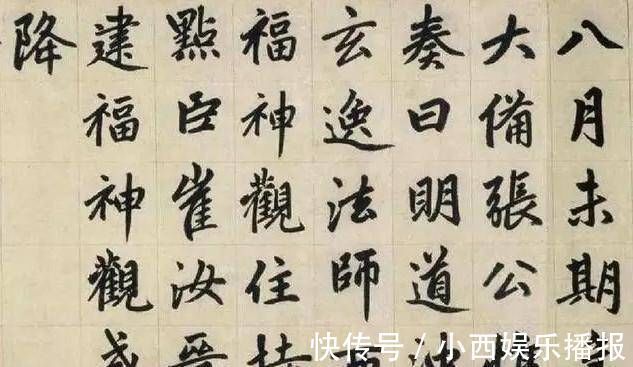 八月未期
大備張公
奏曰明道
玄逸法師
福神觀住
點臣崔汝
建福神觀
降
快传号 / 小西娱乐播报